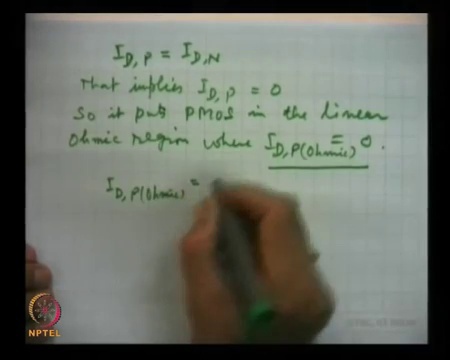 I_D,P = I_D,N
That implies I_D,P = 0
So it puts PMOS in the linear
Ohmic region where I_D,P(Ohmic) = 0.
I_D,P(Ohmic) =
NPTEL